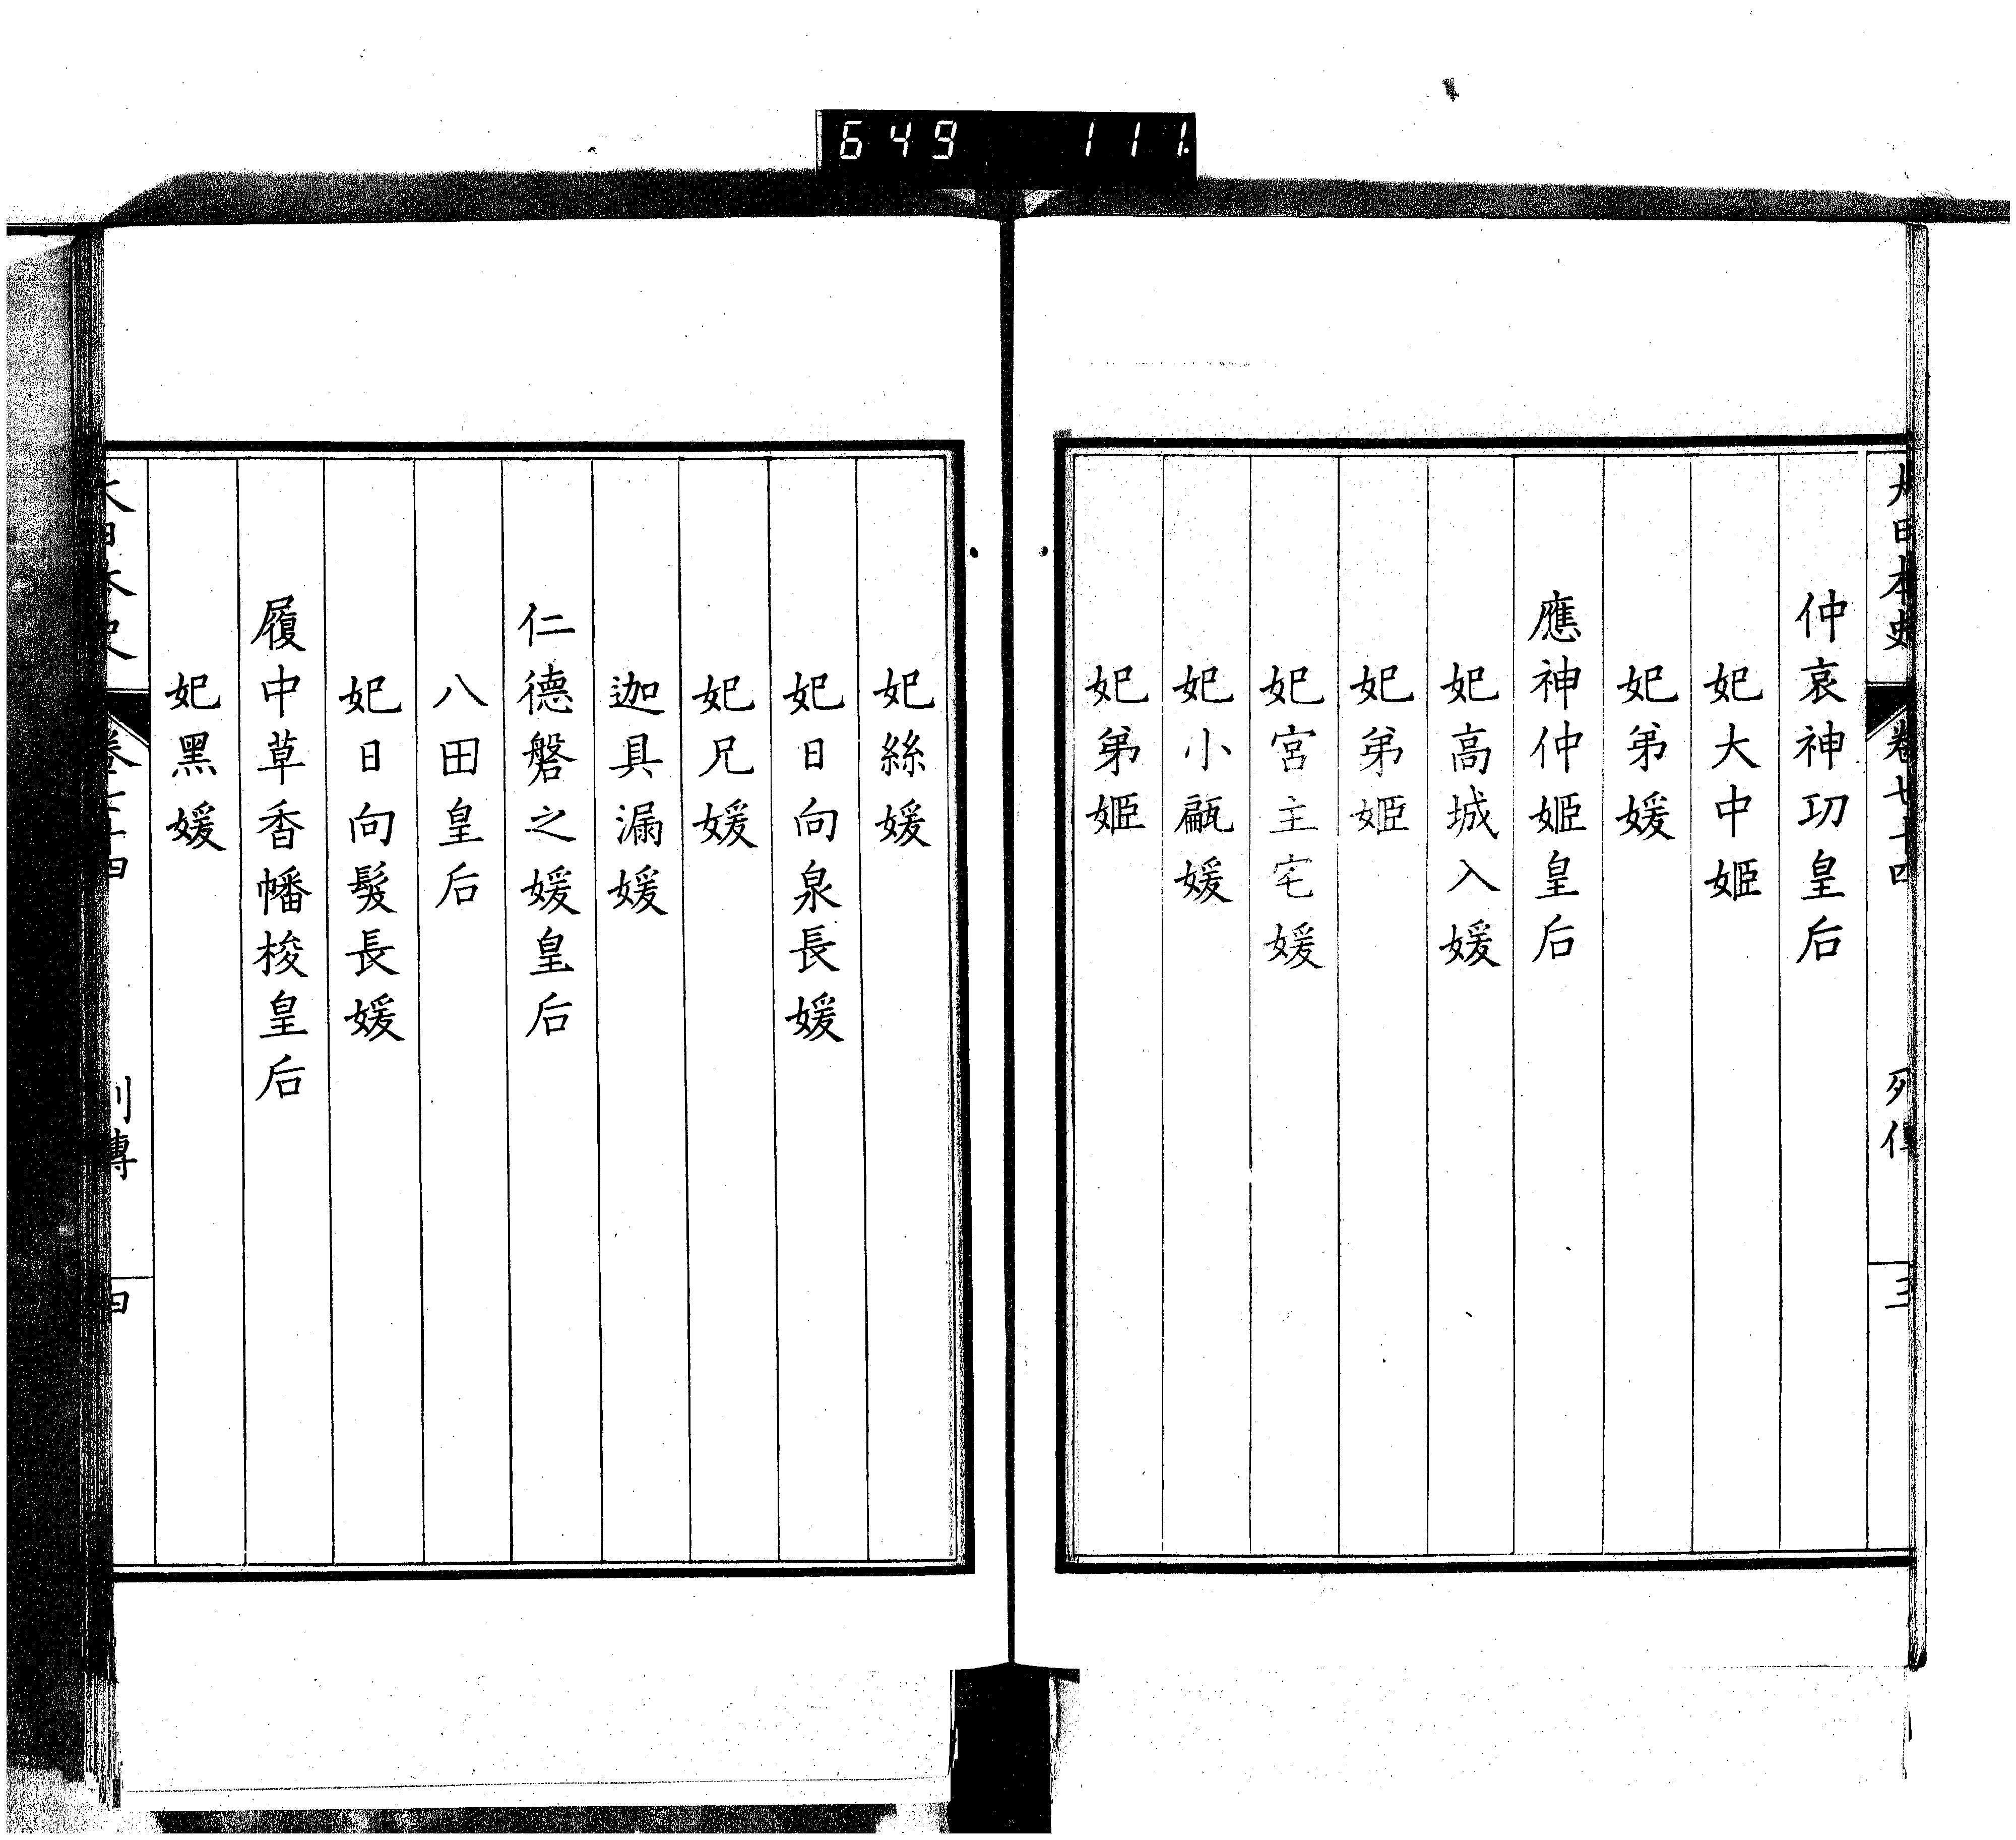 649 111.
大日本史 卷七十四 列傳 三
仲哀神功皇后
妃大中姬
妃弟媛
應神仲姬皇后
妃高城入媛
妃弟姬
妃宮主宅媛
妃小甂媛
妃弟姬
妃絲媛
妃日向泉長媛
妃兄媛
迦具漏媛
仁德磐之媛皇后
八田皇后
妃日向髮長媛
履中草香幡梭皇后
妃黑媛
大日本史 卷七十四 列傳 四